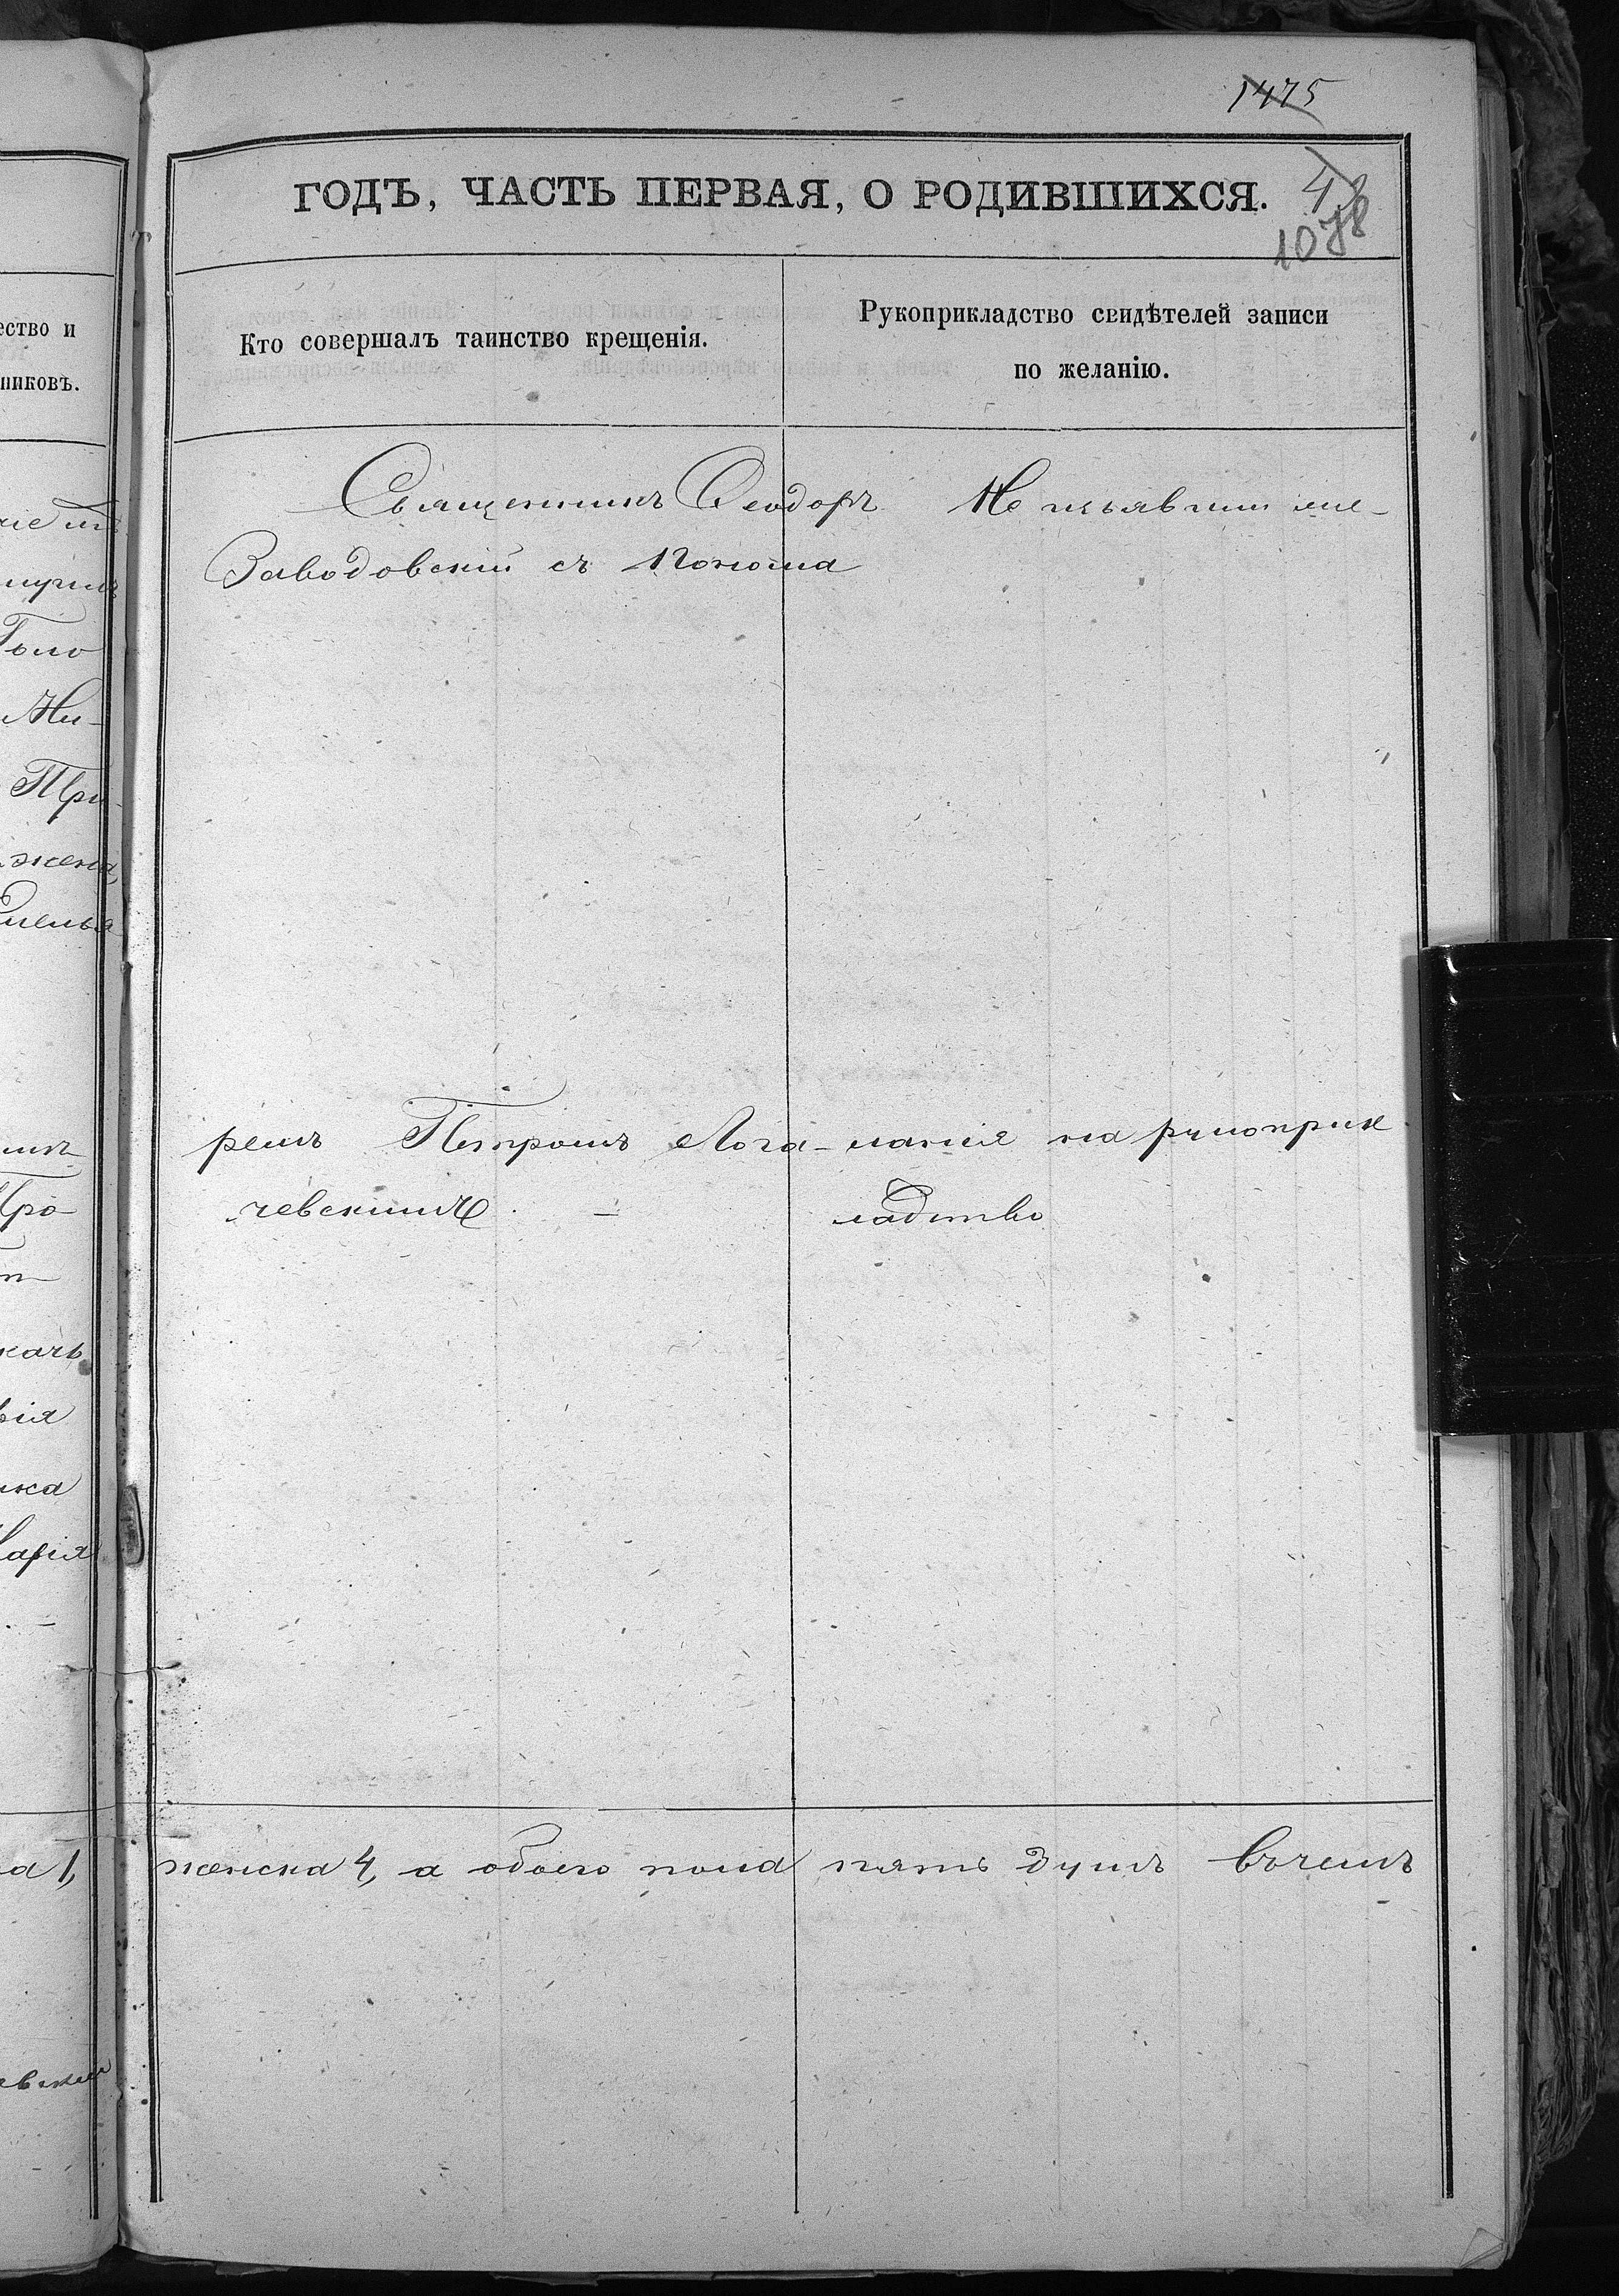 1475
ГОДЪ, ЧАСТЬ ПЕРВАЯ, О РОДИВШИХСЯ.
4
1078
ество и
никовъ.
Кто совершалъ таинство крещенія.
Рукоприкладство свидѣтелей записи
по желанію.
Священникъ Ѳеодоръ
Заводовскій съ Понома
ремъ Петромъ Лога-
чевскимъ. –
Не изъявили же-
ланія на рукоприк
ладство
Голо
Ни-
При-
жена
Про-
вія
арія
а 1, женска 4, а обоего пола пять душъ въ чемъ